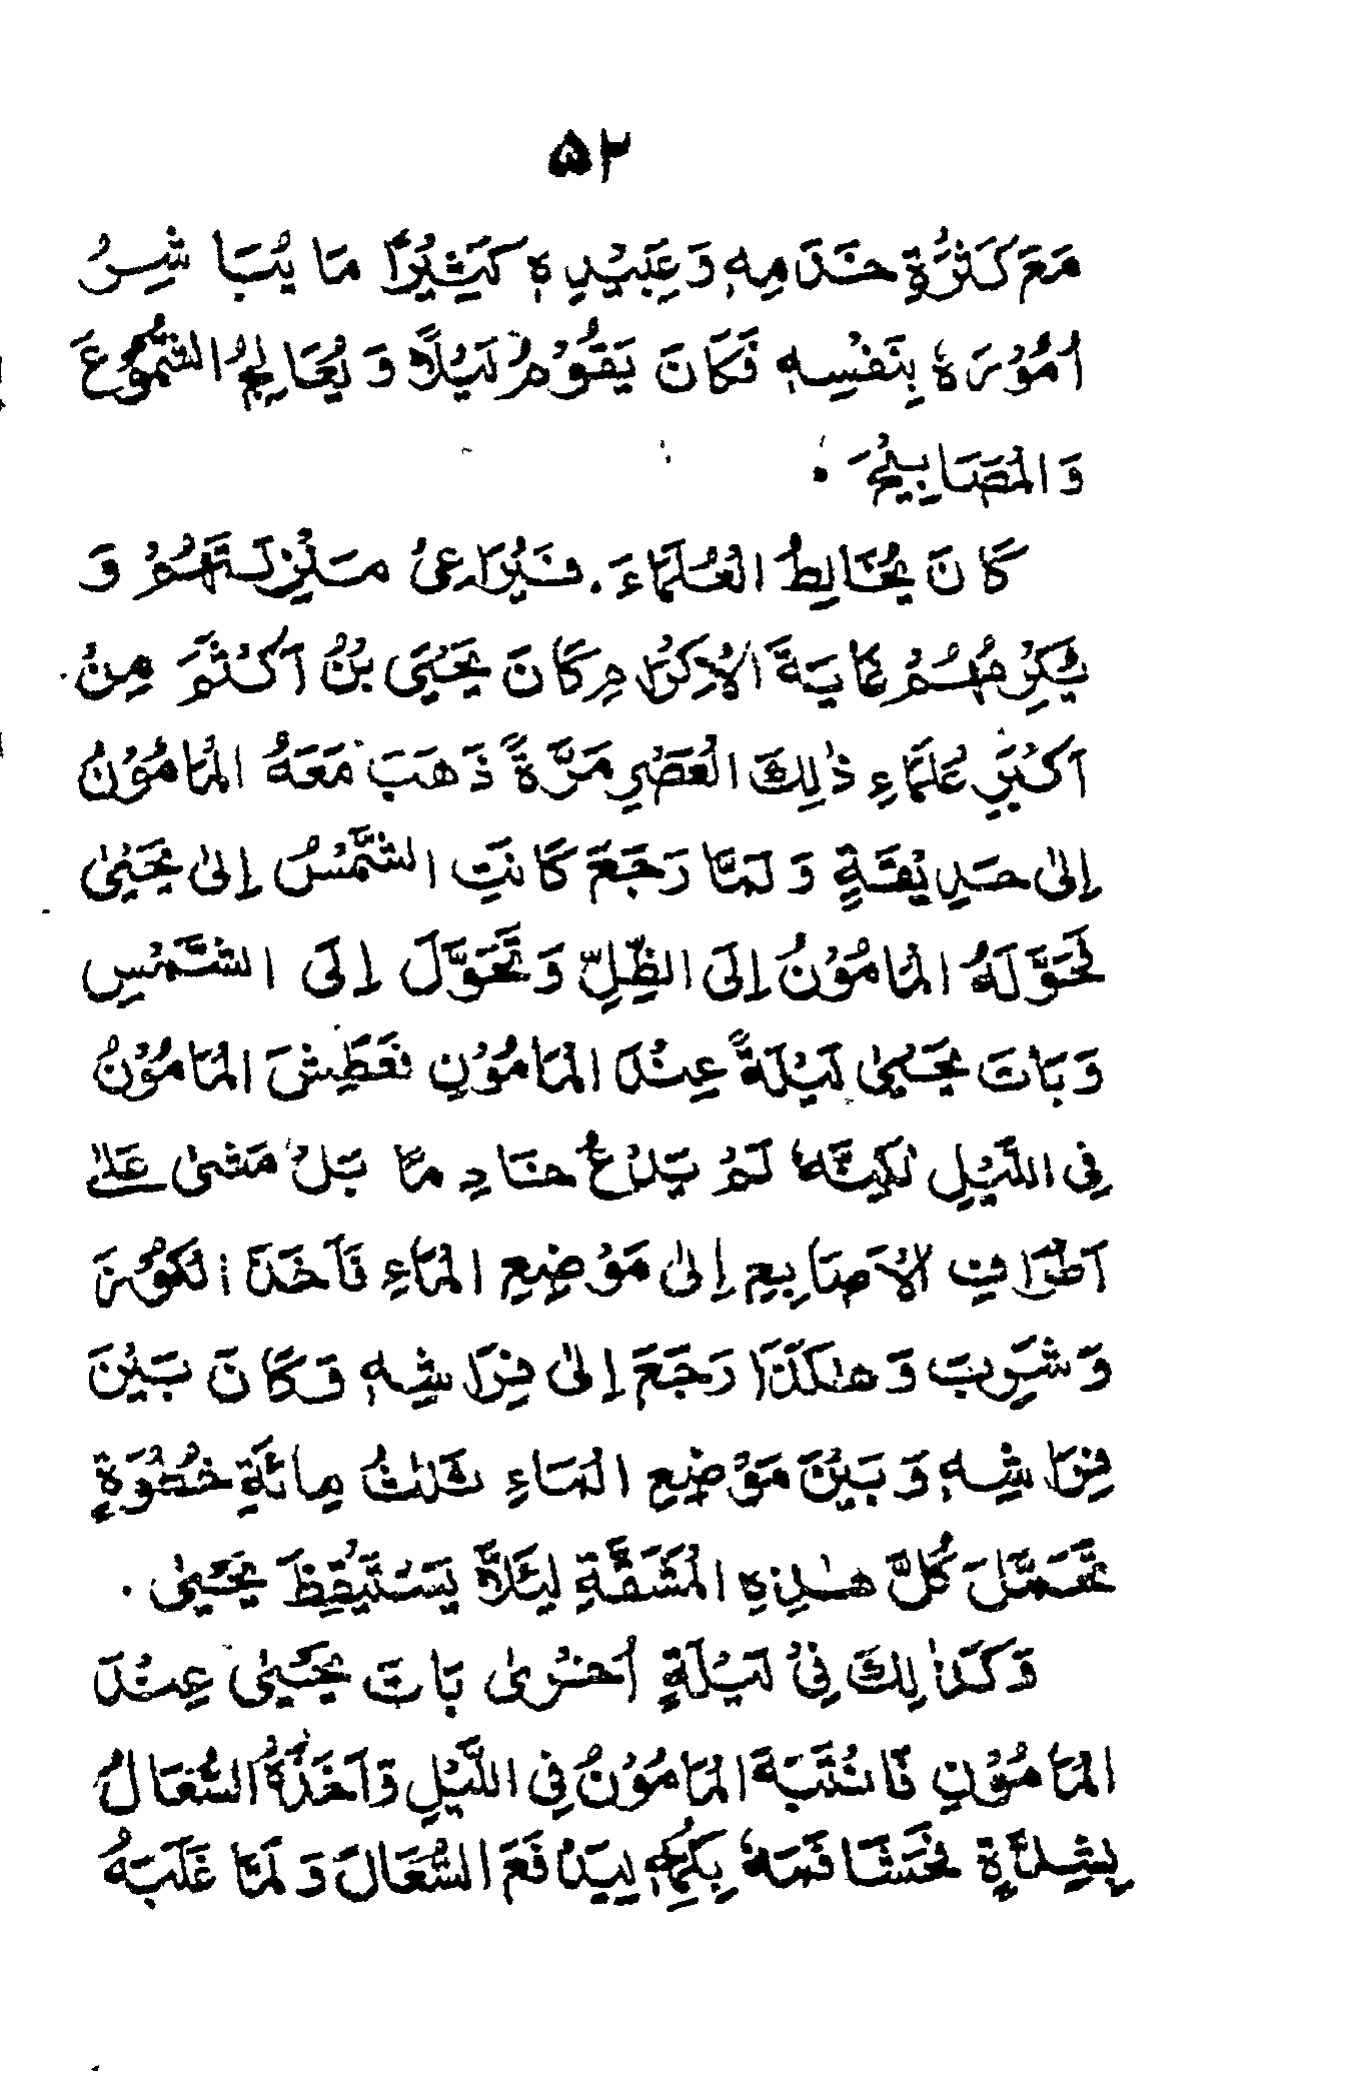 ۵۲
مَعَ كَثْرَةِ خَدَمِهٖ وَعَبِيْدِهٖ كَثِيْرًا مَا يُبَاشِرُ
اُمُوْرَهٗ بِنَفْسِهٖ فَكَانَ يَقُوْمُ لَيْلًا وَيُعَالِجُ الشُّمُوْعَ
وَالْمَصَابِيْحَ .
كَانَ يُخَالِطُ الْعُلَمَاءَ . فَيُرَاعِىْ مَنْزِلَتَهُمْ وَ
يُكْرِمُهُمْ غَايَةَ الْاِكْرَامِ كَانَ يَحْيَى بْنُ اَكْثَمَ مِنْ
اَكْبَرِ عُلَمَاءِ ذٰلِكَ الْعَصْرِ مَرَّةً ذَهَبَ مَعَهُ الْمَامُوْنُ
اِلٰى حَدِيْقَةٍ وَلَمَّا رَجَعَ كَانَتِ الشَّمْسُ اِلٰى يَحْيٰى
فَحَوَّلَهُ الْمَامُوْنُ اِلَى الظِّلِّ وَتَحَوَّلَ اِلَى الشَّمْسِ
وَبَاتَ يَحْيٰى لَيْلَةً عِنْدَ الْمَامُوْنِ فَعَطِشَ الْمَامُوْنُ
فِى اللَّيْلِ لٰكِنَّهٗ لَمْ يَدْعُ خَادِمًا بَلْ مَشٰى عَلٰى
اَطْرَافِ الْاَصَابِعِ اِلٰى مَوْضِعِ الْمَاءِ فَاَخَذَ الْكُوْزَ
وَشَرِبَ وَهٰكَذَا رَجَعَ اِلٰى فِرَاشِهٖ وَكَانَ بَيْنَ
فِرَاشِهٖ وَبَيْنَ مَوْضِعِ الْمَاءِ ثَلٰثُ مِائَةِ خُطْوَةٍ
تَحَمَّلَ كُلَّ هٰذِهِ الْمَشَقَّةِ لِئَلَّا يَسْتَيْقِظَ يَحْيٰى .
وَكَذٰلِكَ فِىْ لَيْلَةٍ اُخْرٰى بَاتَ يَحْيٰى عِنْدَ
الْمَامُوْنِ فَانْتَبَهَ الْمَامُوْنُ فِى اللَّيْلِ وَاَخَذَهُ السُّعَالُ
بِشِدَّةٍ فَحَشَا فَمَهٗ بِكُمِّهٖ لِيَدْفَعَ السُّعَالَ وَلَمَّا غَلَبَهُ